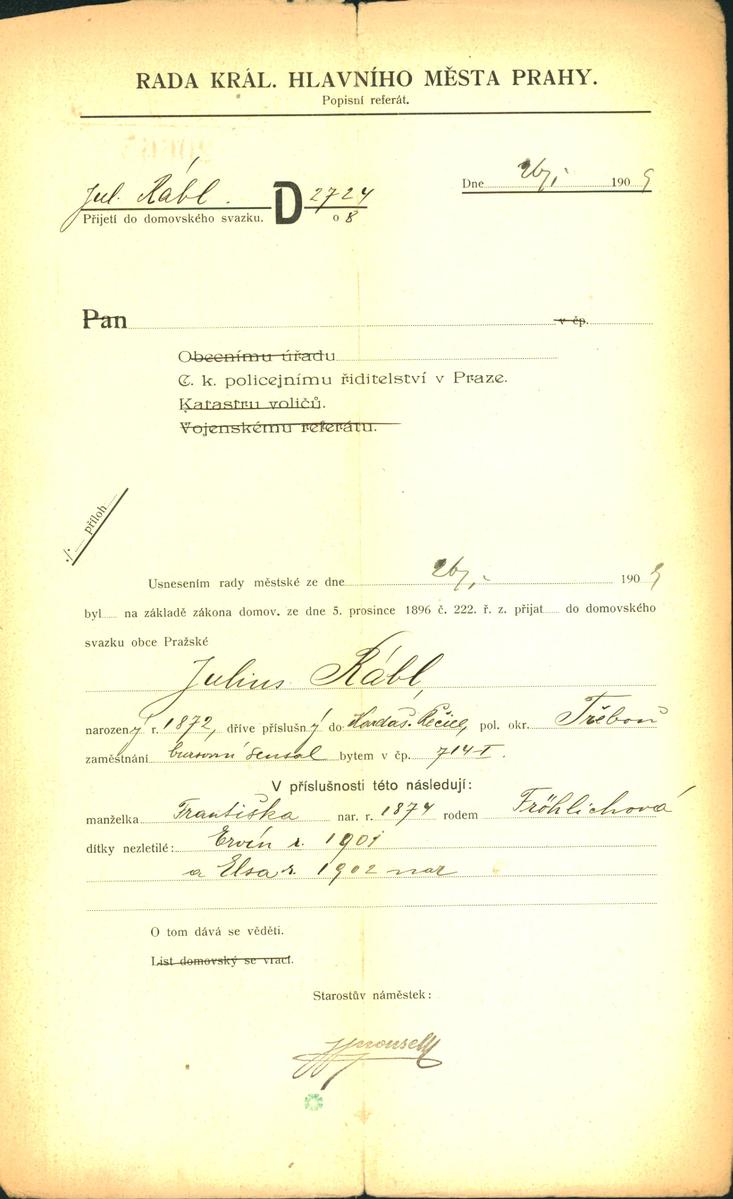 RADA KRÁL. HLAVNÍHO MĚSTA PRAHY.
Popisní referát.
Jul. Rábl. D 2724
Přijetí do domovského svazku. o 8
Dne 26/I 1909
Pan v čp.
Obecnímu úřadu
C. k. policejnímu řiditelství v Praze.
Katastru voličů.
Vojenskému referátu.
·/. příloh
Usnesením rady městské ze dne 26/I 1909
byl na základě zákona domov. ze dne 5. prosince 1896 č. 222. ř. z. přijat do domovského
svazku obce Pražské
Julius Rábl,
narozený r. 1872, dříve příslušný do Kardaš. Řečice, pol. okr. Třeboň
zaměstnání bursovní sensal bytem v čp. 714 I.
V příslušnosti této následují:
manželka Františka nar. r. 1874 rodem Fröhlichová
dítky nezletilé: Ervín r. 1901
a Elsa r. 1902 nar
O tom dává se věděti.
List domovský se vrací.
Starostův náměstek: